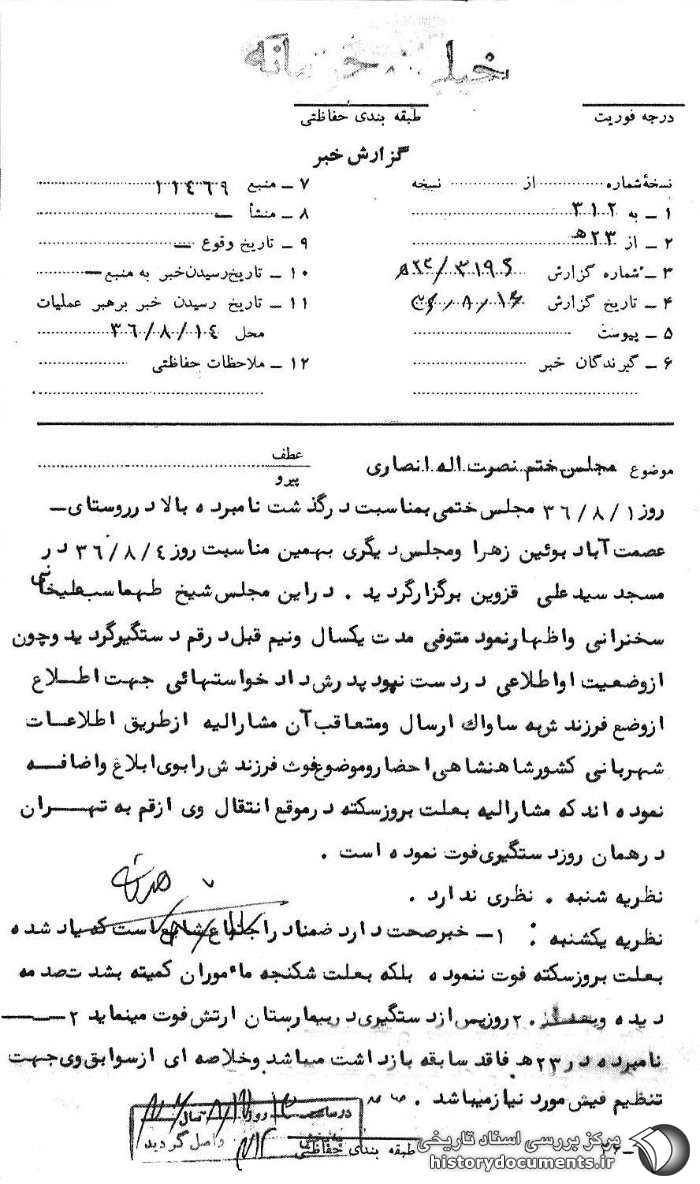 خیلی محرمانه
درجه فوریت
طبقه بندی حفاظتی
گزارش خبر
نسخهٔ شماره از نسخه
۱ ـ به ۳۱۲
۲ ـ از ۲۳ه‍
۳ ـ شماره گزارش
۴ ـ تاریخ گزارش
۵ ـ پیوست
۶ ـ گیرندگان خبر
۷ ـ منبع ۱۱۴۶۹
۸ ـ منشأ —
۹ ـ تاریخ وقوع —
۱۰ ـ تاریخ رسیدن خبر به منبع —
۱۱ ـ تاریخ رسیدن خبر برهبر عملیات
محل ۳۶/۸/۱۴
۱۲ ـ ملاحظات حفاظتی
موضوع مجلس ختم نصرت اله انصاری
عطف
پیرو
روز ۳۶/۸/۱ مجلس ختمی بمناسبت درگذشت نامبرده بالا درروستای ـ
عصمت آباد بوئین زهرا ومجلس دیگری بهمین مناسبت روز ۳۶/۸/۴ در
مسجد سید علی قزوین برگزارگردید . دراین مجلس شیخ طهماسبعلیخانی
سخنرانی واظهارنمود متوفی مدت یکسال ونیم قبل درقم دستگیرگردید وچون
ازوضعیت اواطلاعی دردست نبود پدرش دادخواستهائی جهت اطلاع
ازوضع فرزندش به ساواک ارسال ومتعاقب آن مشارالیه ازطریق اطلاعات
شهربانی کشورشاهنشاهی احضاروموضوع فوت فرزندش رابوی ابلاغ واضافه
نموده اند که مشارالیه بعلت بروزسکته درموقع انتقال وی ازقم به تهران
درهمان روزدستگیری فوت نموده است .
نظریه شنبه . نظری ندارد .
نظریه یکشنبه : ۱ـ خبرصحت دارد ضمناً دراجتماع شایع است که یاد شده
بعلت بروزسکته فوت ننموده بلکه بعلت شکنجه مأموران کمیته بشدت صدمه
دیده وبعد از ۲۰ روزپس ازدستگیری دربیمارستان ارتش فوت مینماید ۲ـ
نامبرده در ۲۳ه‍ فاقد سابقه بازداشت میباشد وخلاصه ای ازسوابق وی جهت
تنظیم فیش مورد نیازمیباشد .
درساعت روز
واصل گردید
طبقه بندی حفاظتی
مرکز بررسی اسناد تاریخی
historydocuments.ir